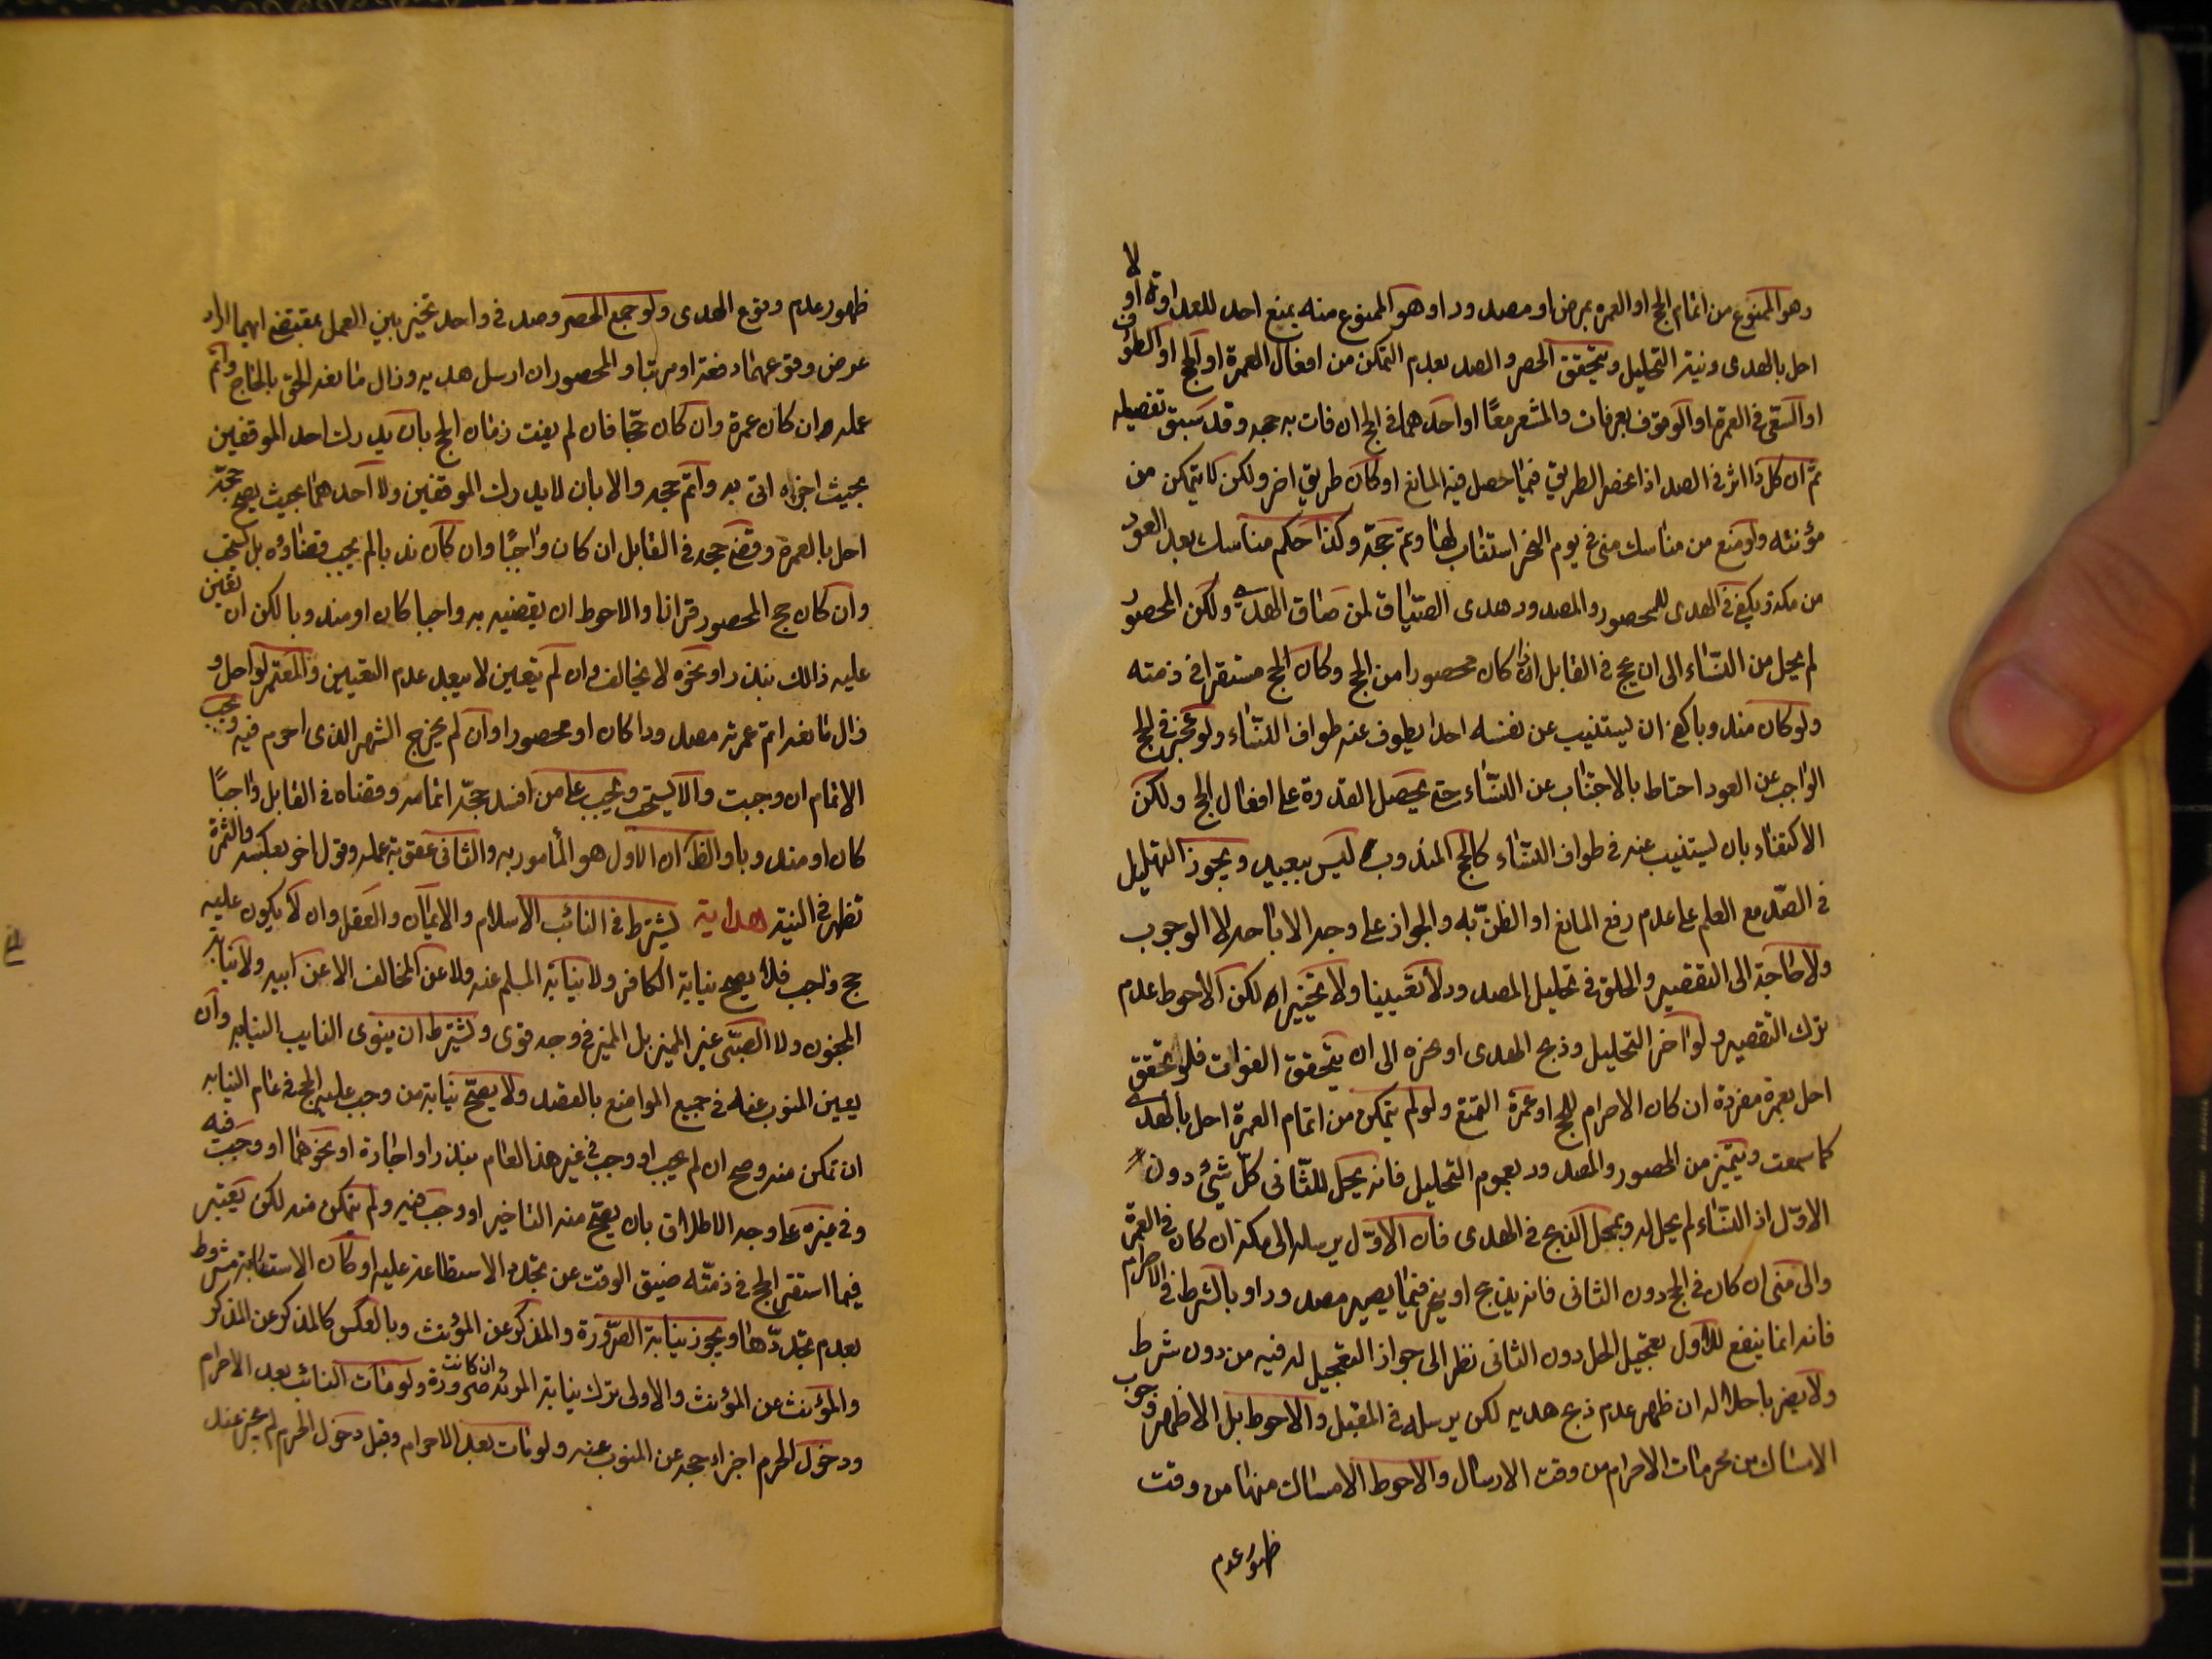 وهو الممنوع من اتمام الحج او العمره بمرض او مصدود او هو الممنوع منه بمنع احد للعداوة او لا
احل بالهدى ونية التحليل ويتحقق الحصر والصد بعدم التمكن من افعال العمرة او الحج او الطواف
او السعى فى العمرة او الوقوف بعرفات والمشعر معًا او احدهما فى الحج ان فات به حجه وقد سبق تفصيله
ثم ان كل ذا اثر فى الصد اذا انحصر الطريق فيما حصل فيه المانع او كان طريق اخر ولكن لا يتمكن من
مؤنته ولو منع من مناسك منى فى يوم النحر استناب لها وتم حجّه وكذا حكم مناسك بعد العود
من مكة ويكفى فى الهدى للمحصور والمصدود هدى السّياق لمن ساق الهدى ولكن المحصور
لم يحل من النّساء الى ان يحج فى القابل اذا كان محصورا من الحج وكان الحج مستقرا فى ذمته
ولو كان مندوبا كفى ان يستنيب عن نفسه احدا يطوف عنه طواف النّساء ولو عجز فى الحج
الواجب عن العود احتاط بالاجتناب عن النّساء حتى يحصل القدرة على افعال الحج ولكن
الاكتفاء بان يستنيب عنه فى طواف النّساء كالحج المندوب ليس ببعيد ويجوز التحليل
فى الصّد مع العلم على عدم رفع المانع او الظنّ به والجواز على وجه الاباحة لا الوجوب
ولا حاجة الى التقصير والحلق فى تحليل المصدود لا تعيينا ولا تخييرا لكن الأحوط عدم
ترك التقصير ولو اخر التحليل وذبح الهدى او نحره الى ان يتحقق الفوات فلو تحقق
احل بعمرة مفردة ان كان الاحرام للحج او عمرة التمتع ولو لم يتمكن من اتمام العمرة احل بالهدى
كما سمعت ويتميز من المحصور والمصدود بعموم التحليل فانه يحل للثّانى كلّ شئ دون
الاوّل اذ النّساء لم يحل له وبمحل الذبح فى الهدى فان الاوّل يرسله الى مكة ان كان فى العمرة
والى منى ان كان فى الحج دون الثانى فانه يذبح او ينحر فيما يصير مصدودا وبالشرط فى الاحرام
فانه انما ينفع للاول تعجيل الحل دون الثانى نظرا الى جواز التعجيل له فيه من دون شرط
ولا يضر باحلاله ان ظهر عدم ذبح هديه لكن يرسله فى المقبل والاحوط بل الاظهر وجوب
الامساك من محرمات الاحرام من وقت الارسال والاحوط الامساك منها من وقت
ظهور عدم
ظهور عدم وقوع الهدى ولو جمع الحصر وصد فى واحد تخير بين العمل بمقتضى ايهما اراد
عرض وقوعهما دفعة او مرتبا والمحصور ان ارسل هديه وزال مانعه التحق بالحاج واتم
عمله ان كان عمرة وان كان حجّا فان لم يفت زمان الحج بان يدرك احد الموقفين
بحيث اجزاه اتى به واتم حجه والا بان لا يدرك الموقفين ولا احدهما بحيث يصح حجّه
احل بالعمرة وقضى حجه فى القابل ان كان واجبًا وان كان ندبا لم يجب قضاؤه بل يستحب
وان كان حج المحصور قرانا والاحوط ان يقضيه به واجبا كان او مندوبا لكن ان تعين
عليه ذالك بنذر او نحوه لا يخالف وان لم يتعين لا يبعد عدم التعيين والمعتمر لو احل و
زال مانعه اتم عمرته مصدودا كان او محصورا وان لم يخرج الشهر الذى احرم فيه ويجب
الاتمام ان وجبت والا يستحب ويجب على من افسد حجّه اتمامه وقضاه فى القابل واجبًا
كان او مندوبا والظ ان الاول هو المأمور به والثانى عقوبة عمله وقول اخر بعكسه والثمرة
تظهر فى النية هداية يشترط فى النائب الاسلام والايمان والعقل وان لا يكون عليه
حج واجب فلا يصح نيابة الكافر ولا نيابة المسلم عنه ولا عن المخالف الا عن ابيه ولا نيابة
المجنون ولا الصبّى غير المميز بل المميز فى وجه قوى ويشترط ان ينوى النايب النيابه وان
يعين المنوب عنه فى جميع المواضع بالقصد ولا يصحّ نيابة من وجب عليه الحج فى عام النيابه
ان تمكن منه وصح ان لم يجب او وجب فى غير هذا العام بنذر او اجارة او نحوهما او وجبت فيه
وفى غيره على وجه الاطلاق بان يصحّ منه التاخير او وجب فيه ولم يتمكن منه لكن يعتبر
فيما استقر الحج فى ذمّته ضيق الوقت عن تجدد الاستطاعة عليه او كان الاستنابة مشروط
بعدم تجدّدها ويجوز نيابة الصّرورة والمذكر عن المؤنث وبالعكس كالمذكر عن المذكر
والمؤنث عن المؤنث والاولى ترك نيابة المرئه ان كانت صرورة ولو مات النائب بعد الاحرام
ودخول الحرم اجزاء حجه عن المنوب عنه ولو مات بعد الاحرام وقبل دخول الحرم لم يجز عند